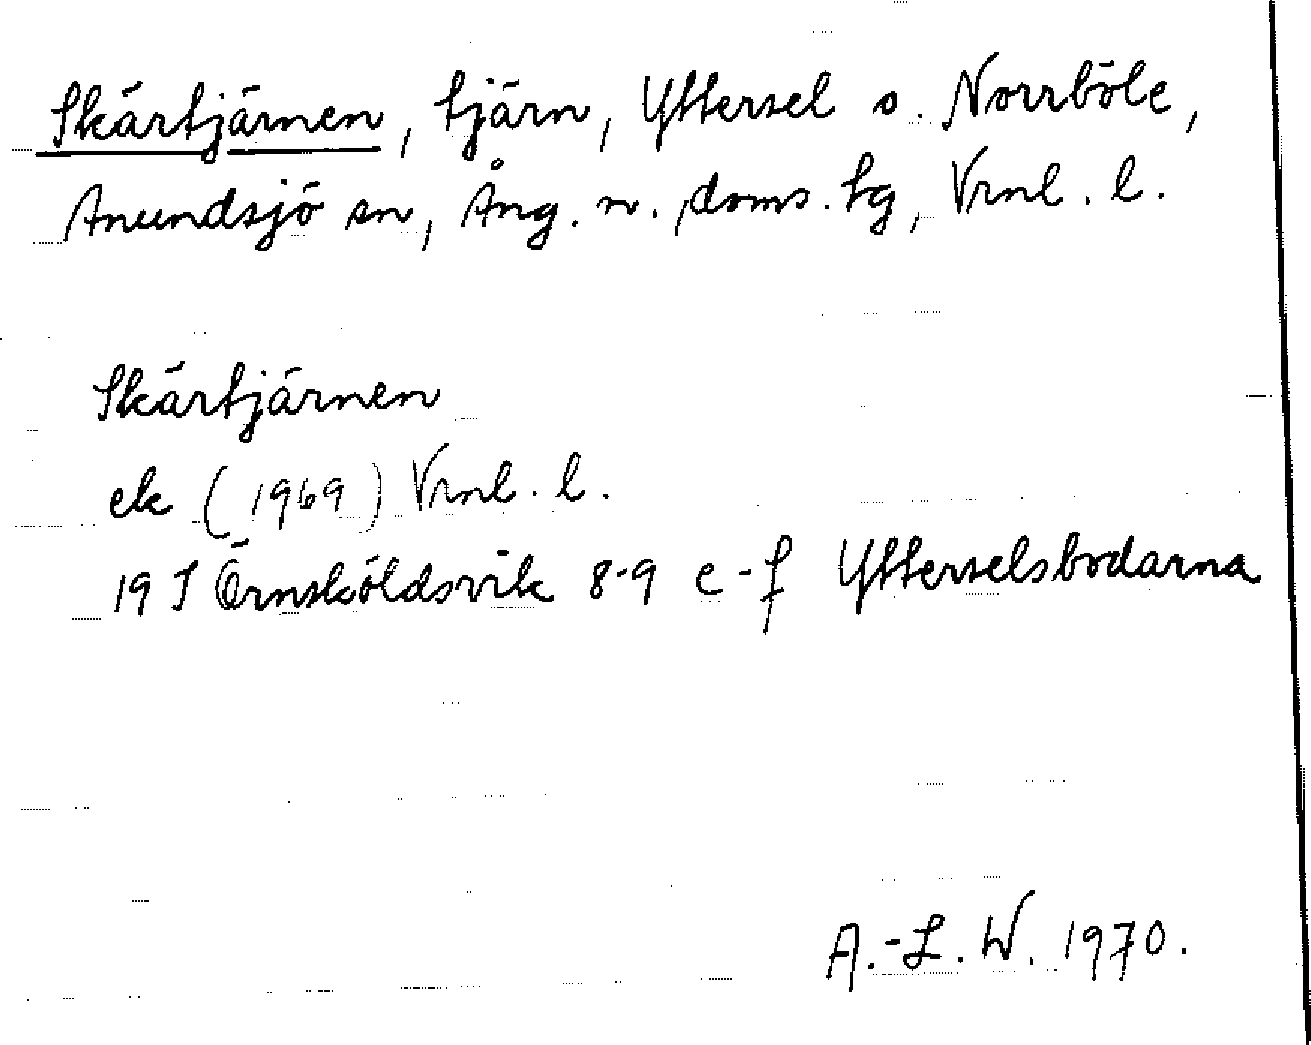 Skärtjärnen, tjärn, Yttersel o. Norrböle,
Anundsjö sn, Ång. n. doms. tg, Vrnl. l.
Skärtjärnen
ek (1969) Vrnl. l.
19 I Örnsköldsvik 8-9 e-f Ytterselsbodarna
A.-L. W. 1970.